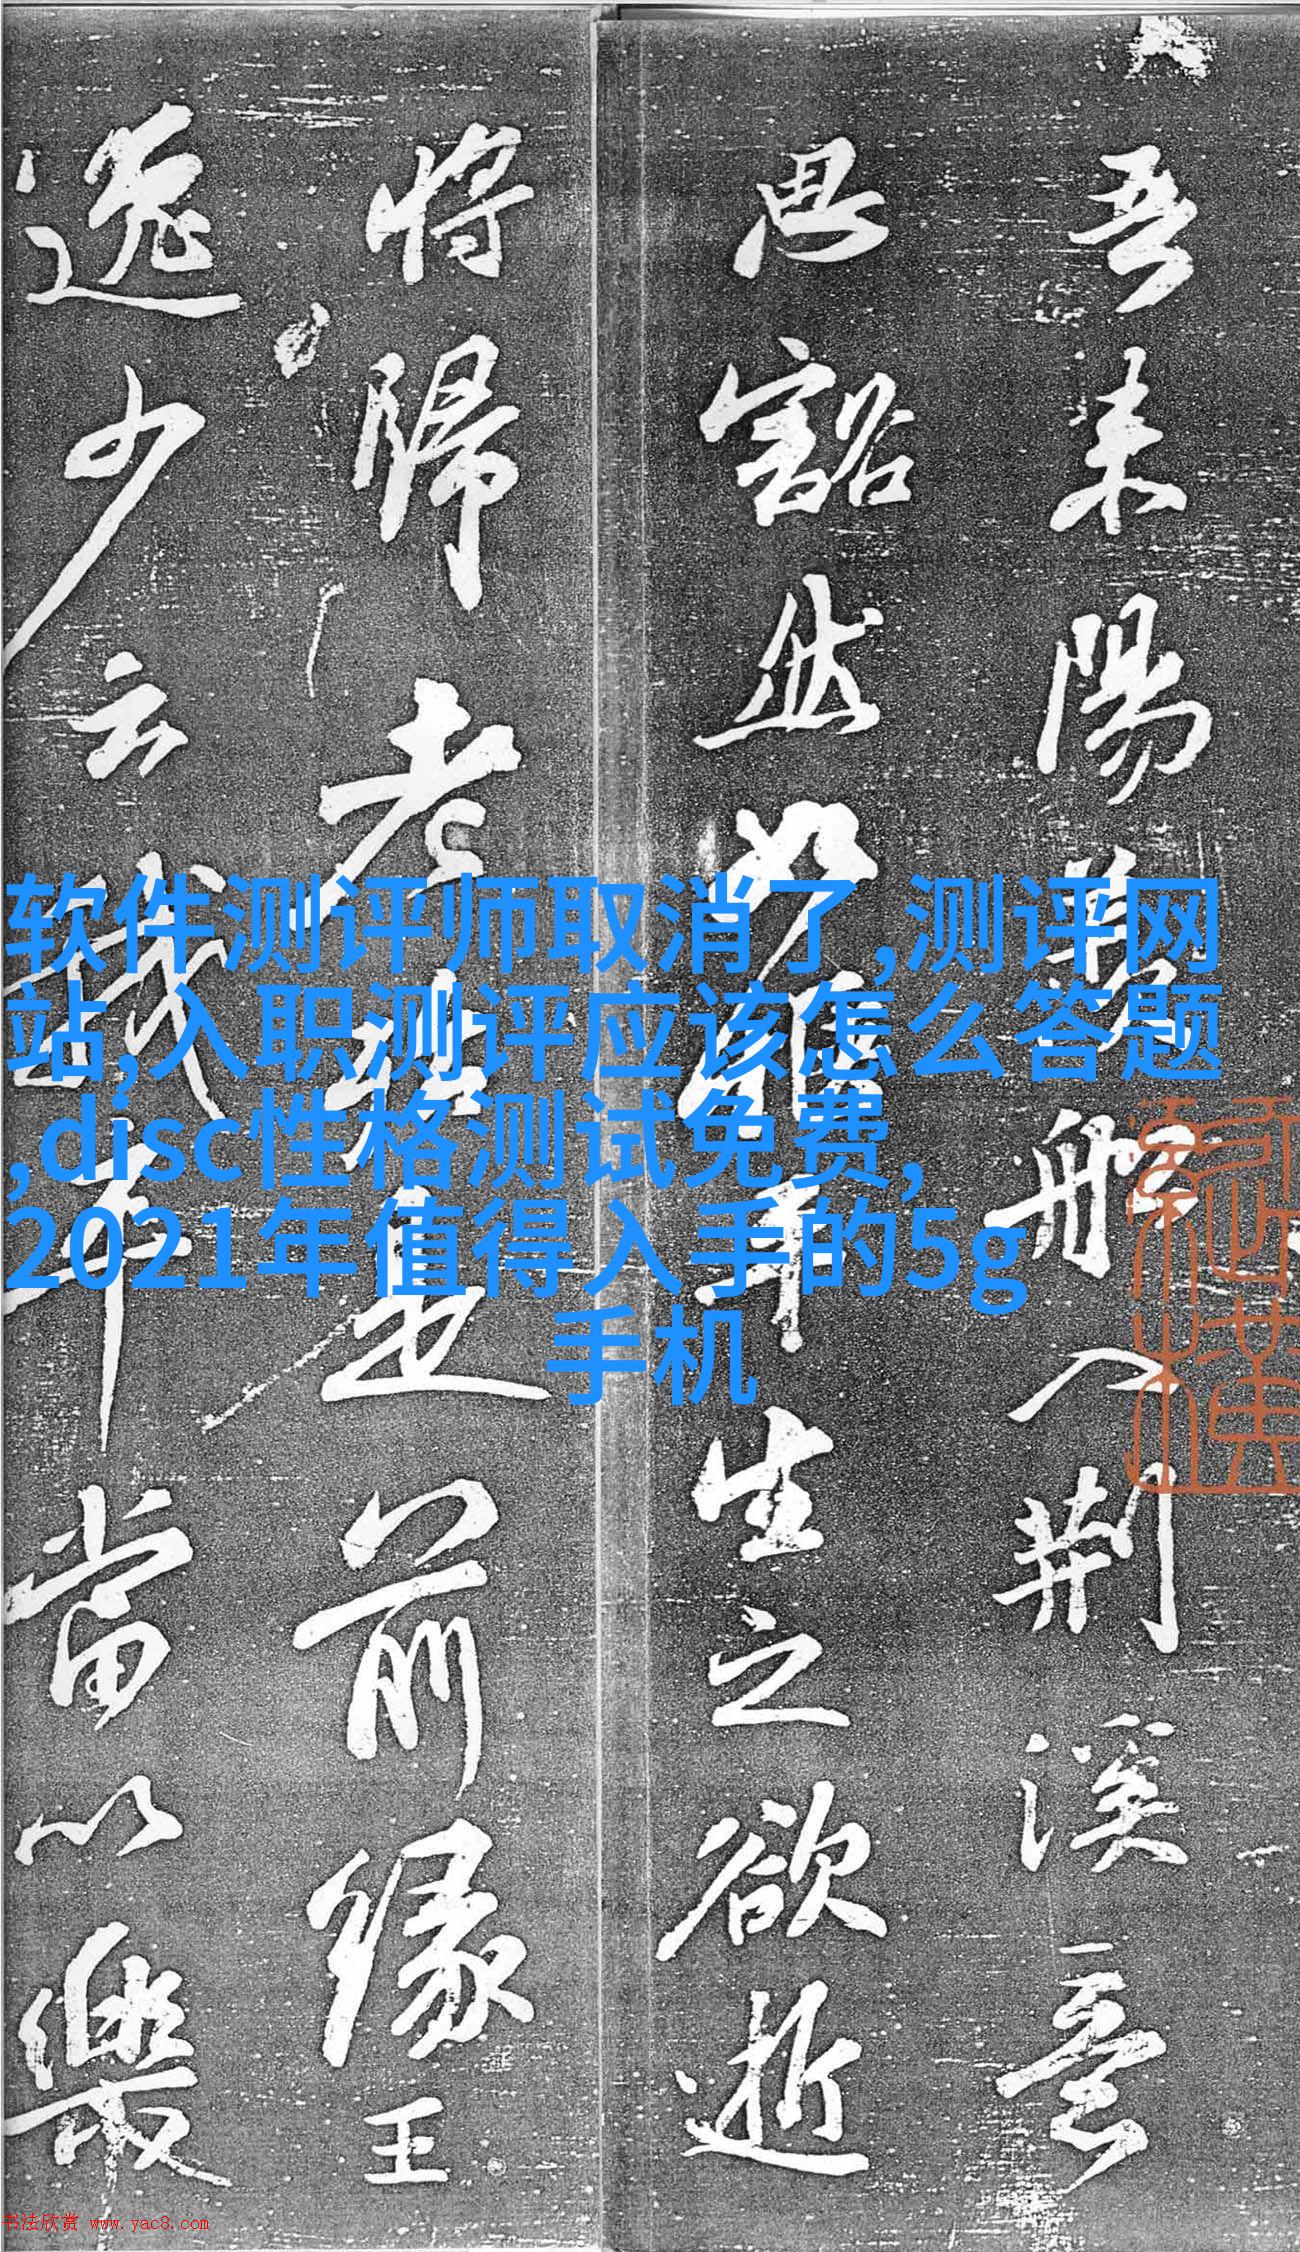 软件测评师取消了,测评网
站,入职测评应该怎么答题
,disc性格测试免费,
2021年值得入手的5g
手机
吾来陽羡舩入荆溪意
思豁然如惬平生之欲逝
将歸老殆是前縁王
逸少云我卒當以樂
书法欣赏 www.yac8.com